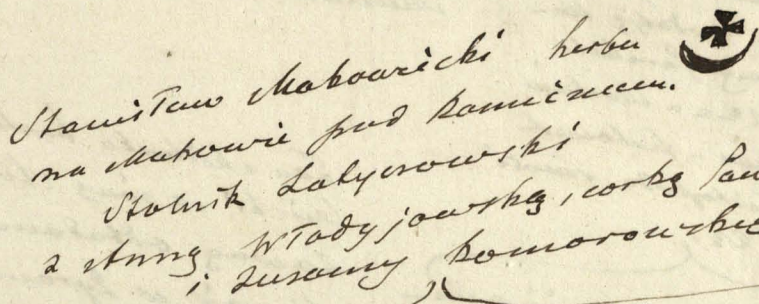 Stanisław Makowiecki herbu
na Makowie pod Kamieńcem.
Stolnik Latyczowski
z Anną Włodyjowską, corką Paw
i Zuzanny Komorowskie